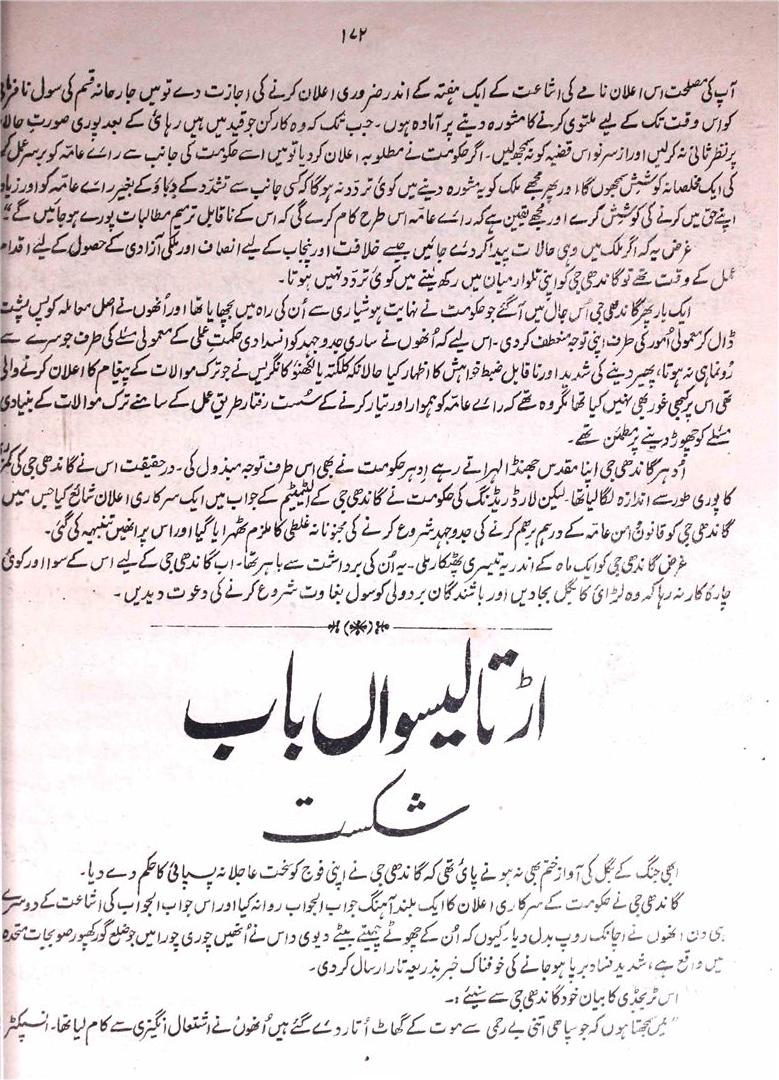 ۱۷۲
آپ کی مصلحت اس اعلان نامے کی اشاعت کے ایک ہفتہ کے اندر ضروری اعلان کرنے کی اجازت دے تو میں جارحانہ قسم کی سول نافرمانی
کو اس وقت تک کے لیے ملتوی کرنے کا مشورہ دینے پر آمادہ ہوں۔ جب تک کہ وہ کارکن جو قید میں ہیں رہائی کے بعد پوری صورت حالات
پر نظر ثانی نہ کرلیں اور از سر نو اس قضیہ کو نہ سمجھ لیں۔ اگر حکومت نے مطلوبہ اعلان کر دیا تو میں اسے حکومت کی جانب سے رائے عامہ کو برسر عمل
کی ایک مخلصانہ کوشش سمجھوں گا اور پھر مجھے ملک کو یہ مشورہ دینے میں کوئی تردد نہ ہوگا کہ کسی جانب سے تشدد کے دباؤ کے بغیر رائے عامہ کو اور زیادہ
اپنے حق میں کرنے کی کوشش کرے اور مجھے یقین ہے کہ رائے عامہ اس طرح کام کرے گی کہ اس کے ناقابل ترمیم مطالبات پورے ہوجائیں گے"
غرض یہ کہ اگر ملک میں وہی حالات پیدا کردئے جائیں جیسے خلافت اور پنجاب کے لیے انصاف اور ملکی آزادی کے حصول کے لئے اقدام
عمل کے وقت تھے تو گاندھی جی کو اپنی تلوار میان میں رکھ لینے میں کوئی تردد نہیں ہوتا۔
ایک بار پھر گاندھی جی اُس جال میں آگئے جو حکومت نے نہایت ہوشیاری سے اُن کی راہ میں بچھایا تھا اور اُنھوں نے اصل معاملہ کو پس پشت
ڈال کر معمولی اُمور کی طرف اپنی توجہ منعطف کردی۔ اس لیے کہ اُنھوں نے ساری جدوجہد کو انسدادی حکمت عملی کے معمولی مسئلے کی طرف جو سرے سے
رونما ہی نہ ہوتا، پھیر دینے کی شدید اور ناقابل ضبط خواہش کا اظہار کیا حالانکہ کلکتہ یا لکھنؤ کانگریس نے جو ترک موالات کے پیغام کا اعلان کرنے والی
تھی اس پر کبھی غور بھی نہیں کیا تھا مگر وہ تھے کہ رائے عامہ کو ہموار اور تیار کرنے کے سُست رفتار طریق عمل کے سامنے ترک موالات کے بنیادی
مسئلے کو چھوڑ دینے پر مطمئن تھے۔
اُدھر گاندھی جی اپنا مقدس جھنڈا لہراتے رہے اِدھر حکومت نے بھی اس طرف توجہ مبذول کی۔ درحقیقت اس نے گاندھی جی کی
کا پوری طور سے اندازہ لگا لیا تھا۔ لیکن لارڈ ریڈنگ کی حکومت نے گاندھی جی کے الٹیمیٹم کے جواب میں ایک سرکاری اعلان شائع کیا جس میں
گاندھی جی کو قانون و امن عامہ کے درہم برہم کرنے کی جدوجہد شروع کرنے کی مجنونانہ غلطی کا ملزم ٹھہرایا گیا اور اس پر انھیں تنبیہہ کی گئی۔
غرض گاندھی جی کو ایک ماہ کے اندر یہ تیسری پھٹکار ملی۔ یہ اُن کی برداشت سے باہر تھا۔ اب گاندھی جی کے لیے اس کے سوا اور کوئی
چارۂ کار نہ رہا کہ وہ لڑائی کا بگل بجا دیں اور باشندگان بردولی کو سول بغاوت شروع کرنے کی دعوت دیدیں۔
اڑتالیسواں باب
شکست
ابھی جنگ کے بگل کی آواز ختم بھی نہ ہونے پائی تھی کہ گاندھی جی نے اپنی فوج کو سخت عاجلانہ پسپائی کا حکم دے دیا۔
گاندھی جی نے حکومت کے سرکاری اعلان کا ایک بلند آہنگ جواب الجواب روانہ کیا اور اس جواب الجواب کی اشاعت کے دوسرے
ہی دن انھوں نے اچانک روپ بدل دیا۔ کیوں کہ اُن کے چھوٹے چہیتے بیٹے دیوی داس نے اُنھیں چوری چورا میں جو ضلع گورکھپور صوبجات متحدہ
میں واقع ہے، شدید فساد برپا ہوجانے کی خوفناک خبر بذریعہ تار ارسال کردی۔
اس ٹریجڈی کا بیان خود گاندھی جی سے سنیئے :۔
"میں سمجھتا ہوں کہ جو سپاہی اتنی بے رحمی سے موت کے گھاٹ اُتار دئے گئے ہیں اُنھوں نے اشتعال انگیزی سے کام لیا تھا۔ انسپکٹر